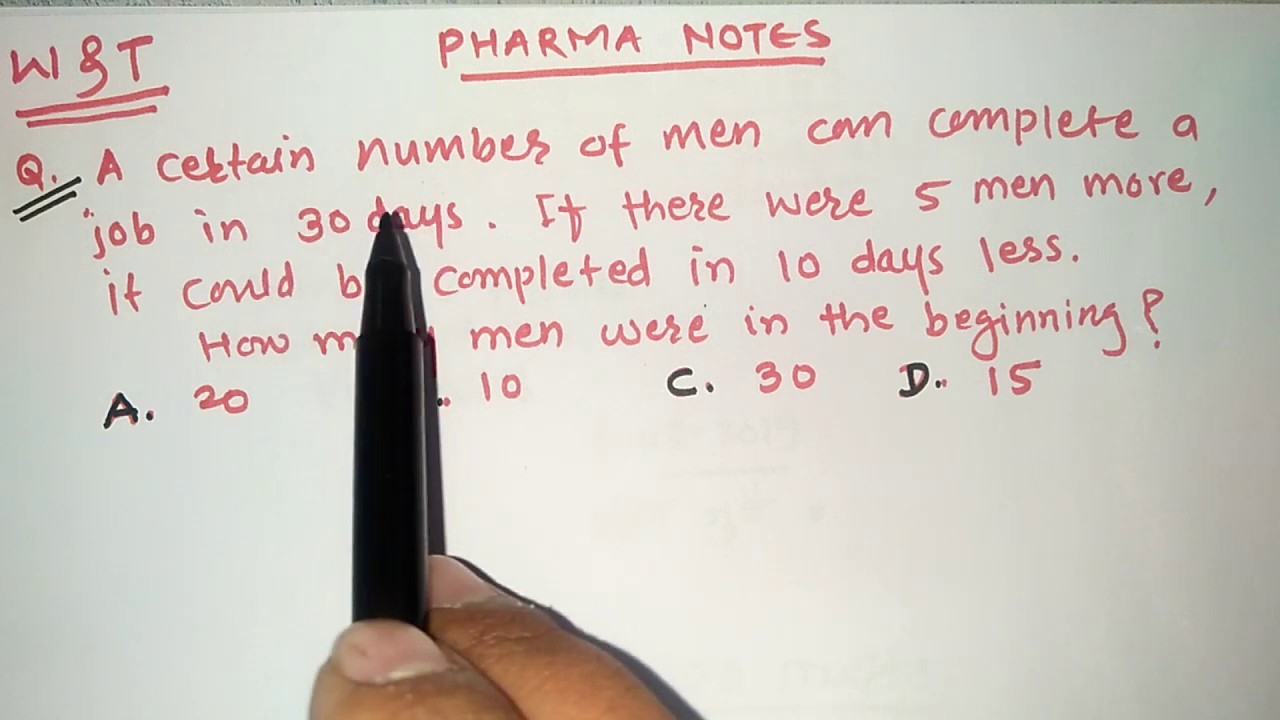 PHARMA NOTES
W & T
Q. A certain number of men can complete a
job in 30 days. If there were 5 men more,
it could b completed in 10 days less.
How m men were in the beginning?
A. 20 . 10 C. 30 D. 15